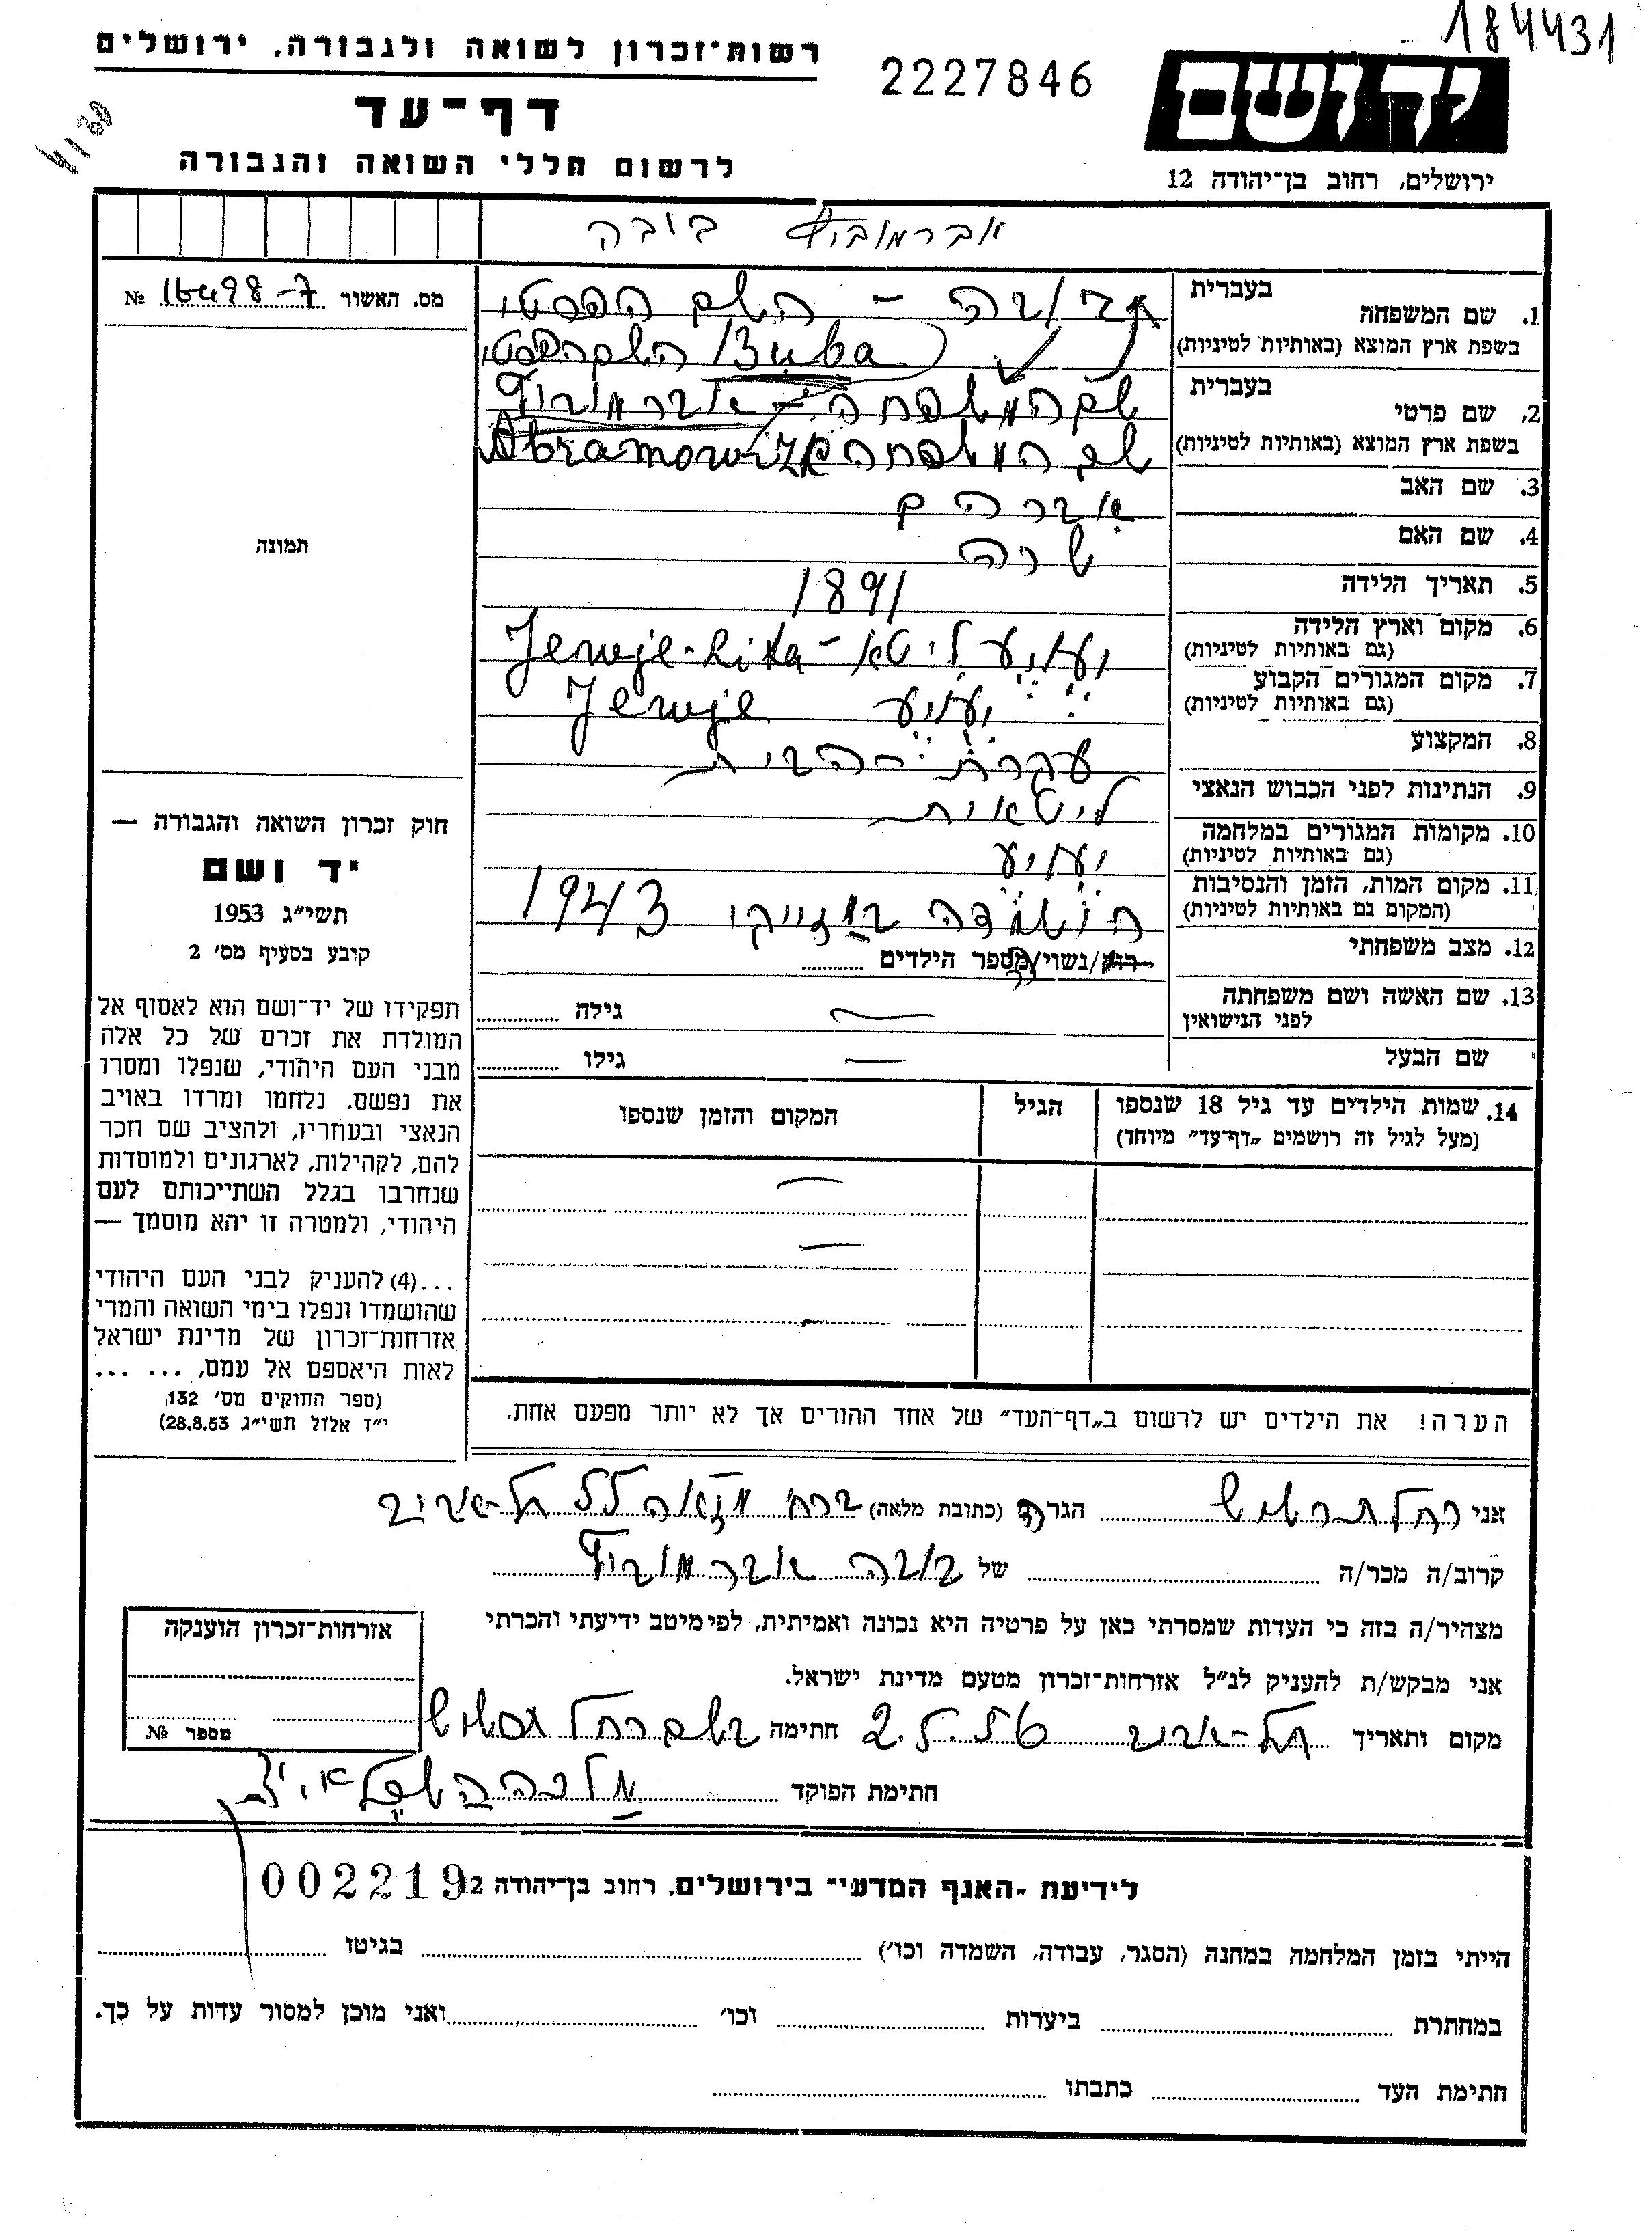 184431
רשות־זכרון לשואה ולגבורה, ירושלים
2227846
יד ושם
דף־עד
לרשום חללי השואה והגבורה
ירושלים, רחוב בן־יהודה 12
אברמוביץ בובה
מס. האשור 16498-7 №
בעברית
1. שם המשפחה
בובה – השם הפרטי
בשפת ארץ המוצא (באותיות לטיניות)
Buba השם הפרטי
בעברית
2. שם פרטי
שם המשפחה – אברמוביץ
בשפת ארץ המוצא (באותיות לטיניות)
שם המשפחה Abramowicz
3. שם האב
אברהם
4. שם האם
שרה
תמונה
5. תאריך הלידה
1891
6. מקום וארץ הלידה
(גם באותיות לטיניות)
יעזיע ליטא – Jewje-Lita
7. מקום המגורים הקבוע
(גם באותיות לטיניות)
Jewje
8. המקצוע
עקרת-הבית
9. הנתינות לפני הכבוש הנאצי
ליטאית
10. מקומות המגורים במלחמה
(גם באותיות לטיניות)
11. מקום המות, הזמן והנסיבות
(המקום גם באותיות לטיניות)
הושמדה 1943
12. מצב משפחתי
רווק/נשוי/מספר הילדים
13. שם האשה ושם משפחתה
לפני הנישואין
גילה
שם הבעל
גילו
14. שמות הילדים עד גיל 18 שנספו
(מעל לגיל זה רושמים "דף־עד" מיוחד)
הגיל
המקום והזמן שנספו
הערה! את הילדים יש לרשום ב"דף־העד" של אחד ההורים אך לא יותר מפעם אחת.
חוק זכרון השואה והגבורה —
יד ושם
תשי"ג 1953
קובע בסעיף מס' 2
תפקידו של יד־ושם הוא לאסוף אל
המולדת את זכרם של כל אלה
מבני העם היהודי, שנפלו ומסרו
את נפשם, נלחמו ומרדו באויב
הנאצי ובעוזריו, ולהציב שם וזכר
להם, לקהילות, לארגונים ולמוסדות
שנחרבו בגלל השתייכותם לעם
היהודי, ולמטרה זו יהא מוסמך —
...(4) להעניק לבני העם היהודי
שהושמדו ונפלו בימי השואה והמרי
אזרחות־זכרון של מדינת ישראל
לאות היאספם אל עמם, ... ...
(ספר החוקים מס' 132,
י"ז אלול תשי"ג 28.8.53)
אני רחל הגרה (כתובת מלאה) תל-אביב
קרוב/ה מכר/ה של בובה אברמוביץ
מצהיר/ה בזה כי העדות שמסרתי כאן על פרטיה היא נכונה ואמיתית, לפי מיטב ידיעתי והכרתי
אני מבקש/ת להעניק לנ"ל אזרחות־זכרון מטעם מדינת ישראל.
מקום ותאריך תל-אביב חתימה בשם רחל
חתימת הפוקד מלכה
אזרחות־זכרון הוענקה
מספר №
לידיעת "האגף המדעי" בירושלים, רחוב בן־יהודה 12
002219
הייתי בזמן המלחמה במחנה (הסגר, עבודה, השמדה וכו') בגיטו
במחתרת ביערות וכו' ואני מוכן למסור עדות על כך.
חתימת העד כתבתו